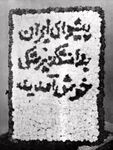 پیشوای ایران
بدانشکده پزشکی
خوش آمدید